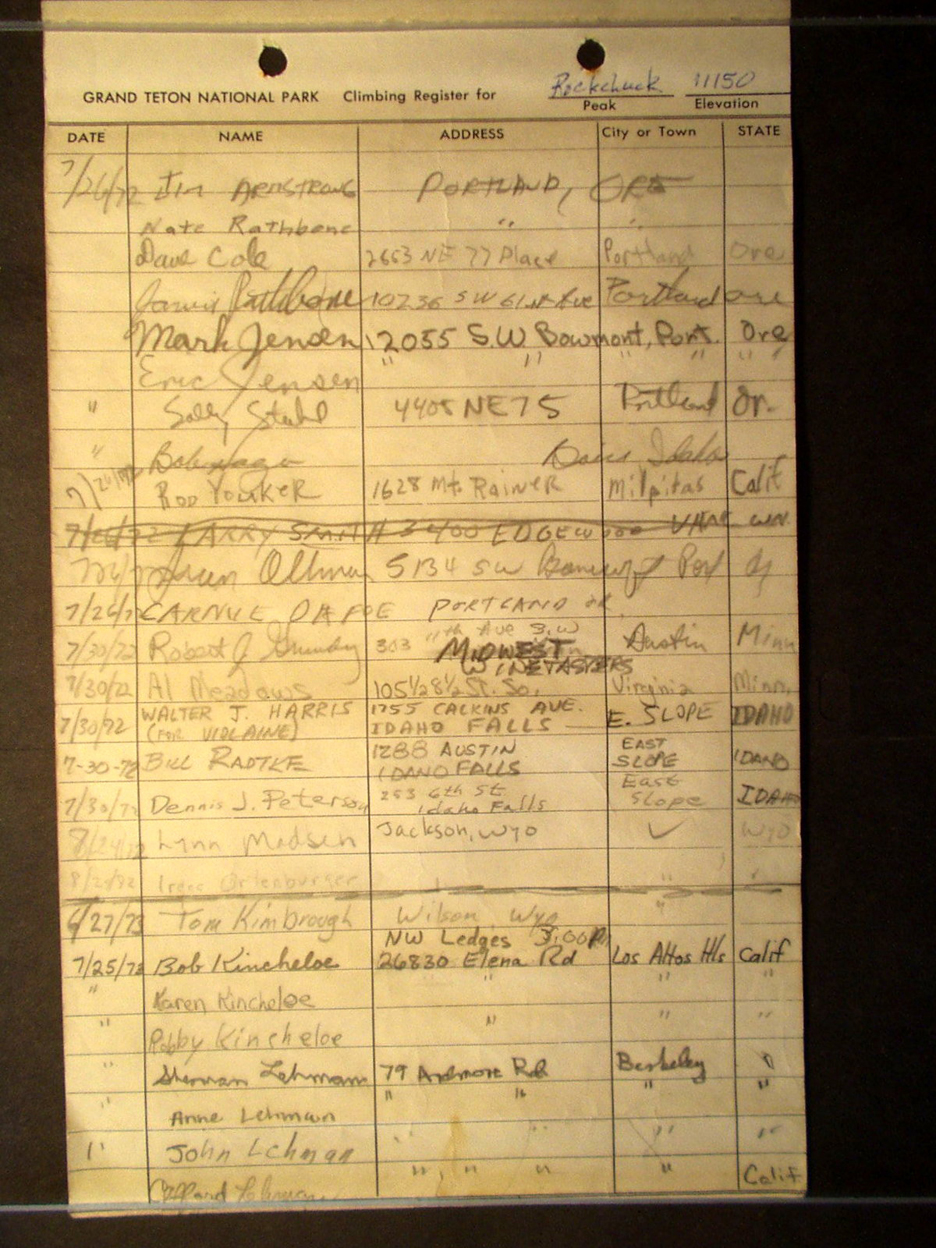 Rockchuck 11150
GRAND TETON NATIONAL PARK Climbing Register for Peak Elevation
DATE NAME ADDRESS City or Town STATE
7/26/72 JIM ARMSTRONG PORTLAND, ORE
Nate Rathbone " "
Dave Cole 2653 NE 77 Place Portland Ore
Jarvis Rathbone 10236 SW 61st Ave Portland ore
Mark Jensen 12055 S.W. Bowmont, Port. Ore
Eric Jensen " " " " " "
" Sally Stahl 4405 NE 75 Portland Or.
" Idaho
7/26/72 ROD YOUKER 1628 Mt. RAINER Milpitas Calif
7/26/72 LARRY SMITH 3400 EDGEWOOD VANC WN.
Ollman 5134 SW Port
7/26/72 CARNIE DAFOE PORTLAND OR.
7/30/72 Robert J 303 11th Ave S.W Austin Minn
MIDWEST
WINETASTERS
7/30/72 Al Meadows 105 1/2 8 1/2 St. So. Virginia Minn.
7/30/72 WALTER J. HARRIS 1755 CALKINS AVE. E. SLOPE IDAHO
(FOR VIOLAINE) IDAHO FALLS
7-30-72 BILL RADTKE 1288 AUSTIN EAST SLOPE IDAHO
IDAHO FALLS
7/30/72 Dennis J. Peterson 253 6th St East Slope IDAHO
Idaho Falls
8/24/72 Lynn Madsen Jackson, Wyo ✓ Wyo
8/27/72 Irene Ortenburger " "
6/27/73 Tom Kimbrough Wilson Wyo "
NW Ledges 3:00 PM
7/25/73 Bob Kincheloe 26830 Elena Rd Los Altos Hls Calif
" Karen Kincheloe " " "
" Robby Kincheloe " " "
" Sherman Lehmann 79 Ardmore Rd Berkeley "
" Anne Lehman " " " "
11 John Lehman " " " "
Clifford Lehman " " " " Calif